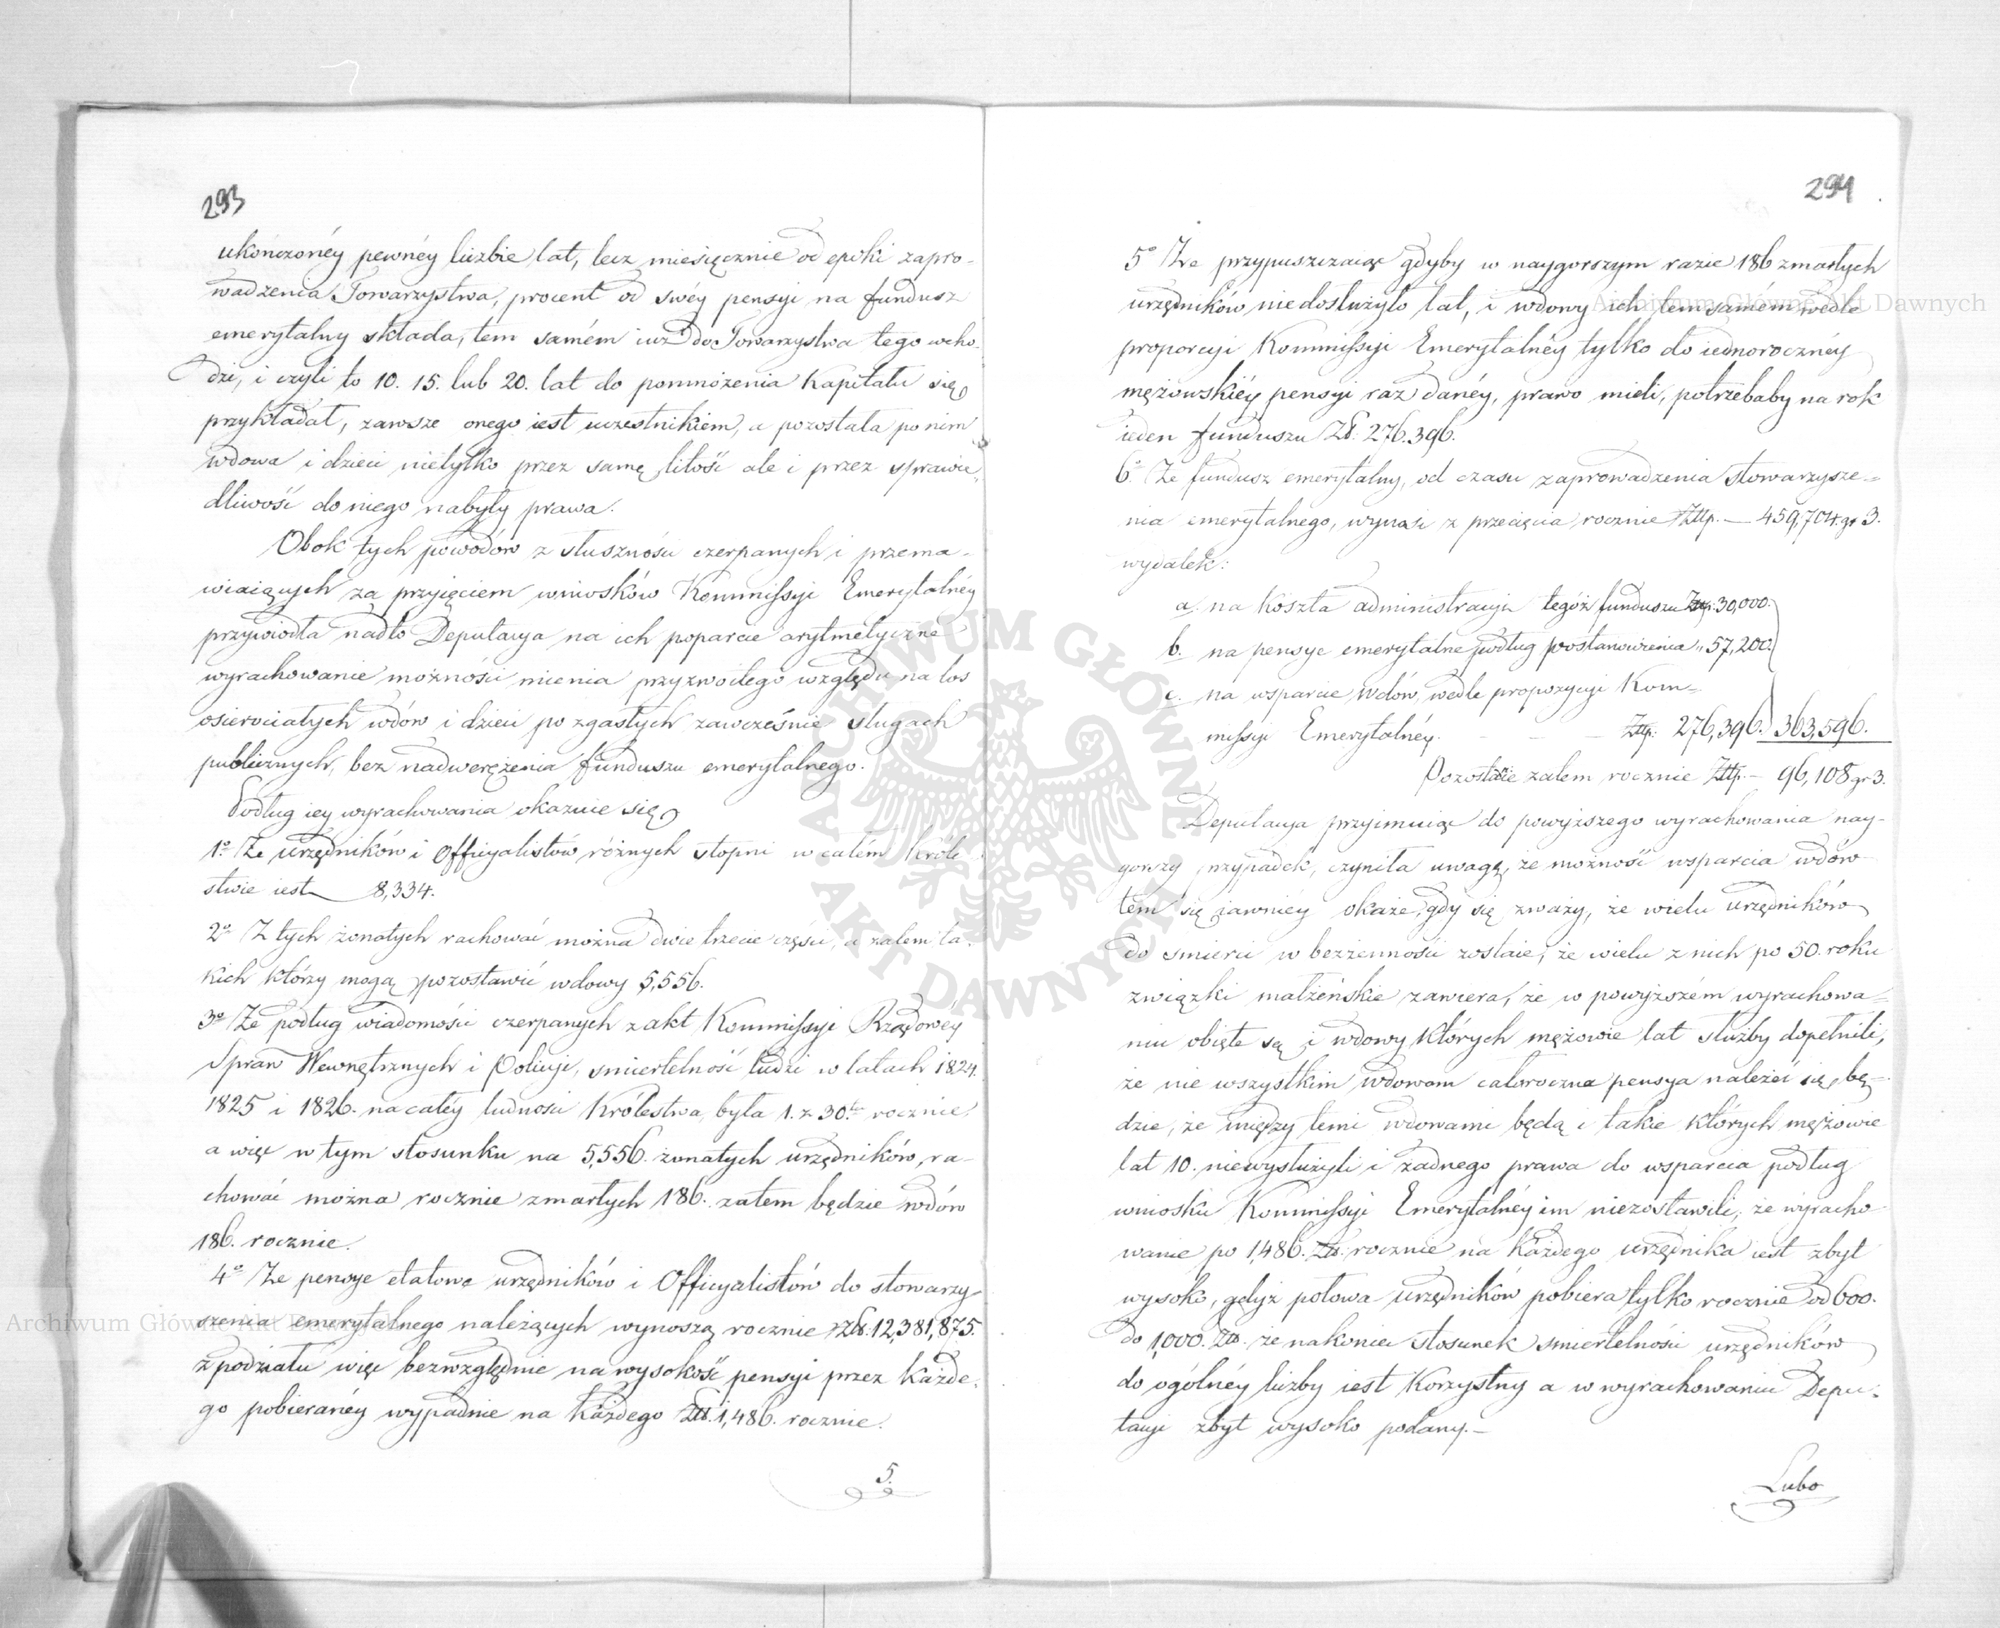 293
ukończonéy pewnéy liczbie lat, lecz miesięcznie od epoki zapro-
wadzenia Towarzystwa, procent od swéy pensyi na fundusz
emerytalny składa, tem samém iuż do Towarzystwa tego wcho-
dzi, i czyli to 10. 15. lub 20. lat do pomnożenia Kapitału się
przykładał, zawsze onego iest uczestnikiem, a pozostała po nim
wdowa i dzieci nietylko przez samę litość ale i przez sprawie-
dliwość do niego nabyły prawa.
Obok tych powodów z słuszności czerpanych i przema-
wiaiących za przyięciem wniosków Kommissyi Emerytalnéy
przywiodła nadto Deputacya na ich poparcie arytmetyczne
wyrachowanie możności mienia przyzwoitego względu na los
osierociałych wdów i dzieci po zgasłych zawcześnie sługach
publicznych, bez nadweręzenia funduszu emerytalnego.
Podług iey wyrachowania okazuie się
1º Że urzędników i Officyalistów różnych stopni w całém Króle-
stwie iest 8,334.
2º Z tych żonatych rachować można dwie trzecie części, a zatem ta-
kich którzy mogą pozostawić wdowy 5,556.
3º Że podług wiadomości czerpanych z akt Kommissyi Rządowéy
Spraw Wewnętrznych i Policyi, smiertelność ludzi w latach 1824.
1825 i 1826. na całéy ludności Królestwa, była 1. z 30tu rocznie,
a więc w tym stosunku na 5,556. żonatych urzędników, ra-
chować można rocznie zmarłych 186. zatem będzie wdów
186. rocznie.
4º Że pensye etatowe urzędników i Officyalistów do stowarzy-
szenia emerytalnego należących wynoszą rocznie Zł. 12,381,875.
z podziału więc bezwzględnie na wysokość pensyi przez każde-
go pobieranéy wypadnie na każdego Zł. 1,486. rocznie.
5.
294
5º Że przypuszczaiąc gdyby w naygorszym razie 186 zmarłych
urzędników niedosłużyło lat, i wdowy ich tem samém wedle
proporcyi Kommissyi Emerytalnéy tylko do iednorocznéy
mężowskiéy pensyi raz danéy, prawo mieli, potrzebaby na rok
ieden funduszu Zł. 276.396.
6º Że fundusz emerytalny, od czasu zaprowadzenia stowarzysze-
nia emerytalnego, wynosi z przecięcia rocznie Złp. — 459,704. gr 3.
wydatek:
a. na koszta administracyi tegóż funduszu Złp. 30,000.
b. na pensye emerytalne podług postanowienia " 57,200.
c. na wsparcie Wdów, wedle propozycyi Kom-
missyi Emerytalnéy. - - - Złp. 276,396. 363,596.
Pozostaie zatem rocznie Złp. — 96,108 gr 3.
Deputacya przyimuiąc do powyższego wyrachowania nay-
gorszy przypadek, czyniła uwagę, że możność wsparcia wdów
tem się iawniey okaże, gdy się zważy, że wielu urzędników
do smierci w bezżenności zostaie; że wielu z nich po 50. roku
związki małżeńskie zawiera, że w powyższém wyrachowa-
niu obięte są i wdowy których mężowie lat służby dopełnili,
że nie wszystkim wdowom całoroczna pensya należeć się bę-
dzie, że między temi wdowami będą i takie których mężowie
lat 10. niewysłużyli i żadnego prawa do wsparcia podług
wniosku Kommissyi Emerytalnéy im niezostawili; że wyracho-
wanie po 1,486. Zł. rocznie na każdego urzędnika iest zbyt
wysoko, gdyż połowa urzędników pobiera tylko rocznie od 600.
do 1,000. Zł. że nakoniec stosunek smiertelności urzędników
do ogólnéy liczby iest korzystny a w wyrachowaniu Depu-
tacyi zbyt wysoko podany.—
Lubo
Archiwum Główne Akt Dawnych
ARCHIWUM GŁÓWNE AKT DAWNYCH
Archiwum Główne Akt Dawnych